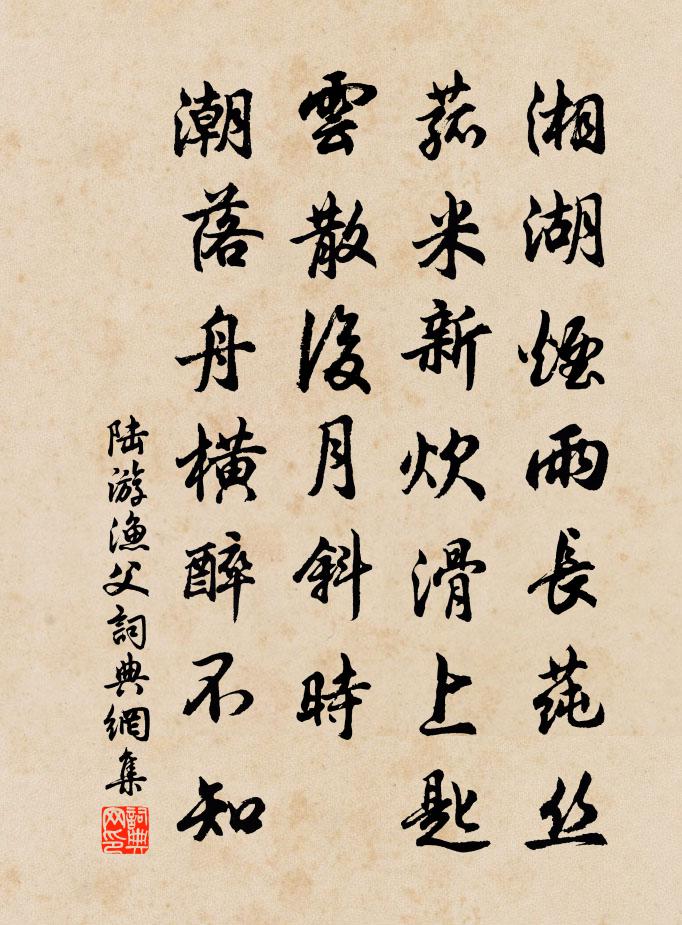 湘湖煙雨長蒓丝
菰米新炊滑上匙
雲散後月斜時
潮落舟横醉不知
陆游漁父詞典網集
詞典網印